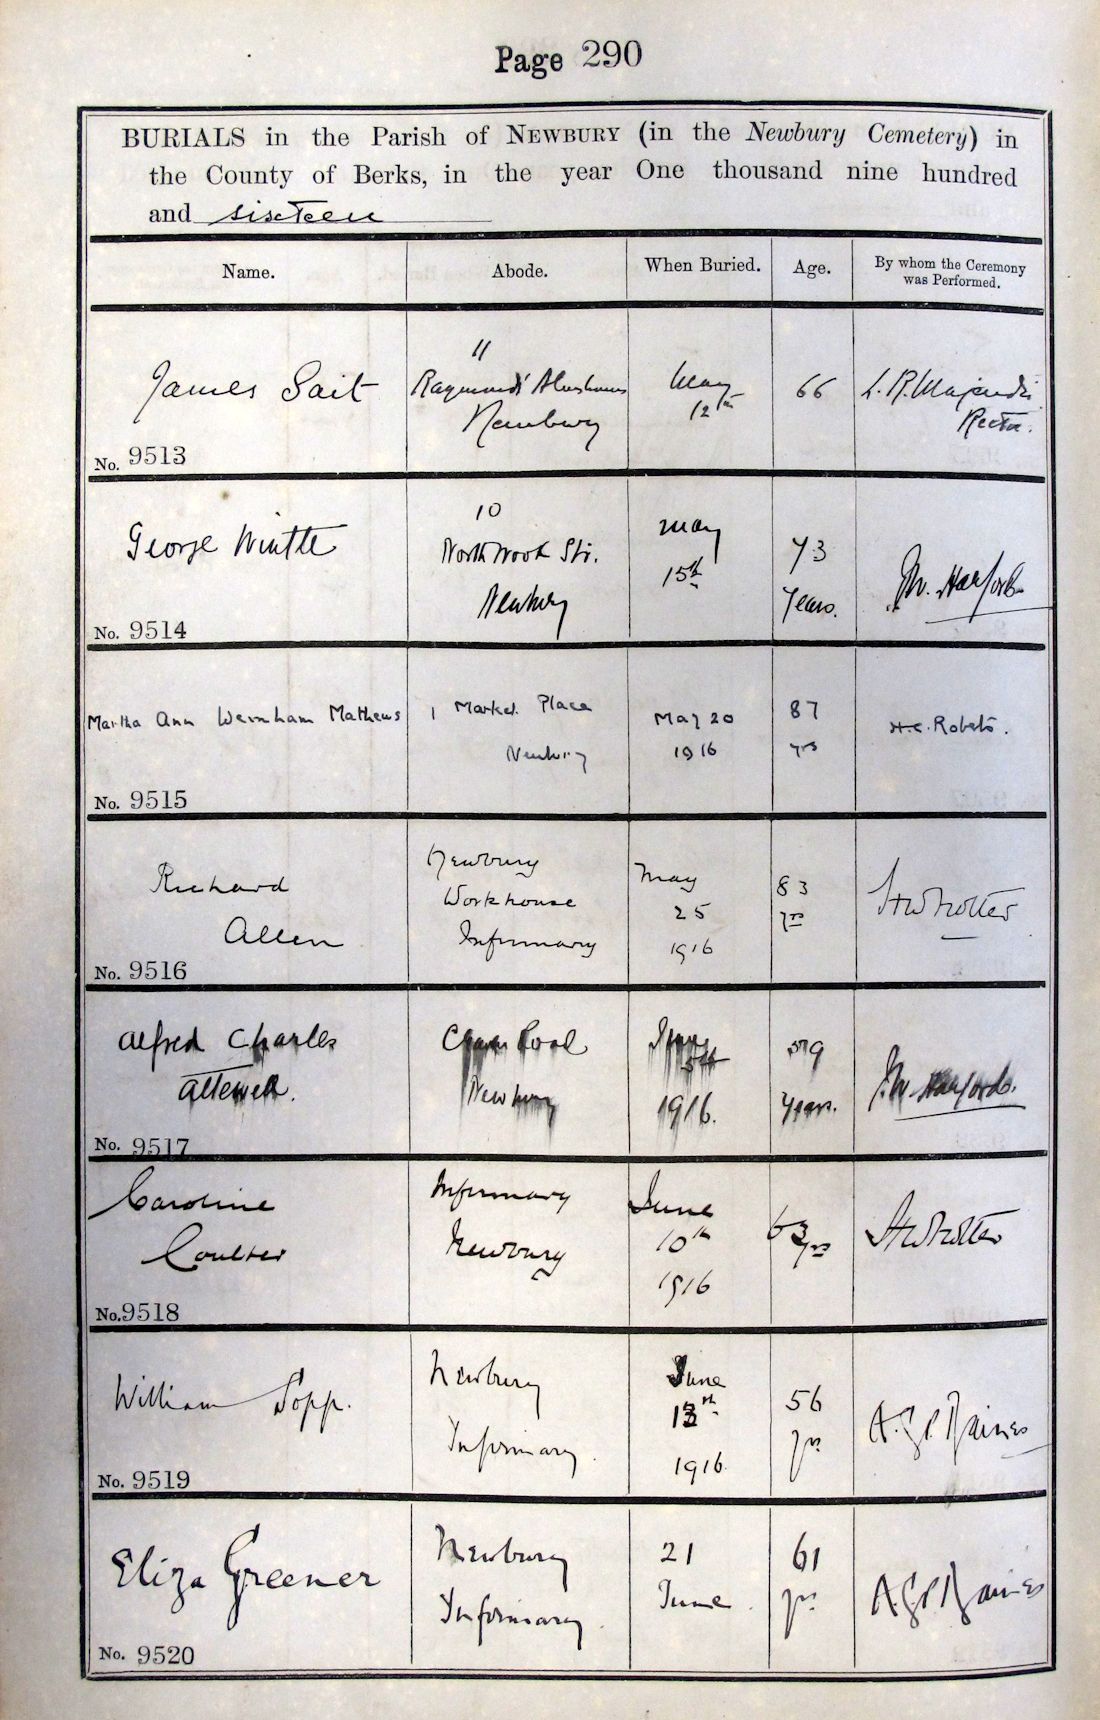 Page 290
BURIALS in the Parish of NEWBURY (in the Newbury Cemetery) in
the County of Berks, in the year One thousand nine hundred
and sixteen
Name.
Abode.
When Buried.
Age.
By whom the Ceremony
was Performed.
James Sait
11
Raymonds' Almshouses
Newbury
May
12th
66
L. R. Majendie
Rector.
No. 9513
George Wintle
10
Northbrook Str.
Newbury
May
15th
73
Years.
No. 9514
Martha Ann Wernham Mathews
1 Market Place
Newbury
May 20
1916
87
yrs
H.C. Roberts.
No. 9515
Richard
Allen
Newbury
Workhouse
Infirmary
May
25
1916
83
yrs
HWTrotter
No. 9516
Alfred Charles
Attewell.
Road
Newbury
1916.
59
Years.
No. 9517
Caroline
Coulter
Infirmary
Newbury
June
10th
1916
63
yrs
HWTrotter
No. 9518
William Sopp.
Newbury
Infirmary.
June
13th
1916.
56
yrs
No. 9519
Eliza Greener
Newbury
Infirmary.
21
June.
61
yrs
No. 9520